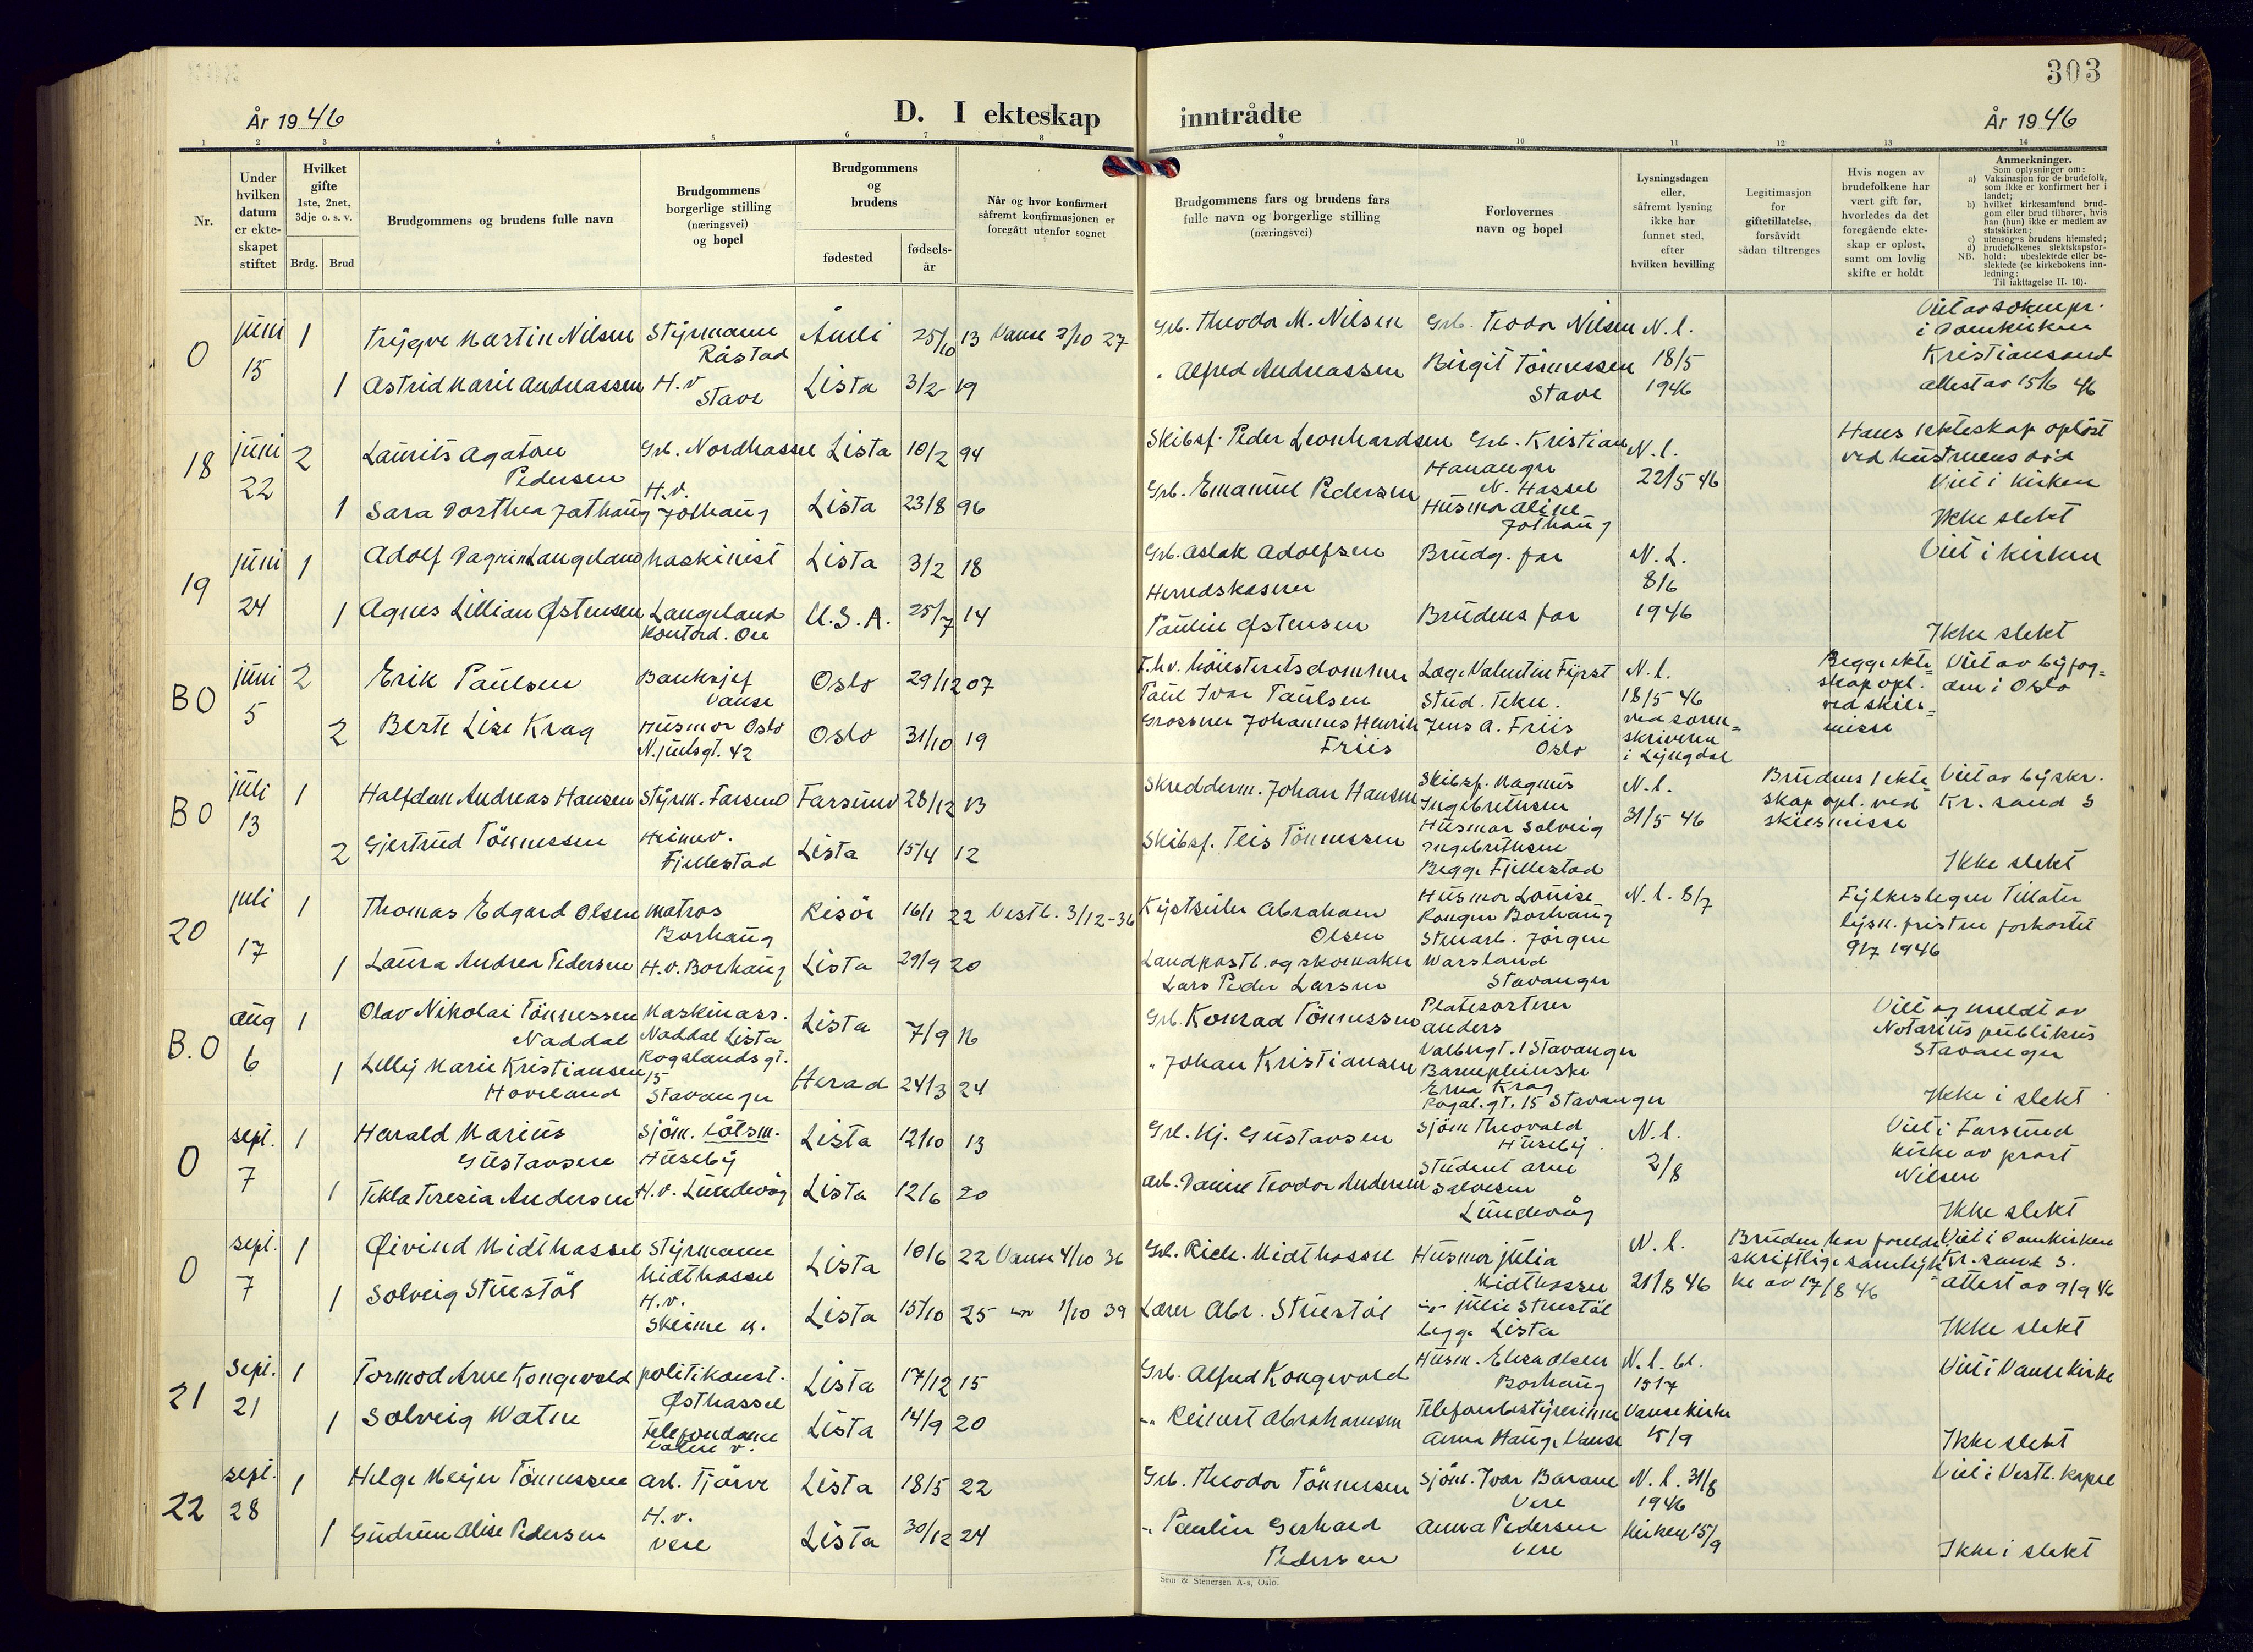 303
År 1946
D. I ekteskap inntrådte
År 1946
1 2 3 4 5 6 7 8 9 10 11 12 13 14
Nr.
Under
hvilken
datum
er ekte-
skapet
stiftet
Hvilket
gifte
1ste, 2net,
3dje o. s. v.
Brdg. Brud
Brudgommens og brudens fulle navn
Brudgommens
borgerlige stilling
(næringsvei)
og bopel
Brudgommens
og
brudens
fødested
fødsels-
år
Når og hvor konfirmert
såfremt konfirmasjonen er
foregått utenfor sognet
Brudgommens fars og brudens fars
fulle navn og borgerlige stilling
(næringsvei)
Forlovernes
navn og bopel
Lysningsdagen
eller,
såfremt lysning
ikke har
funnet sted,
efter
hvilken bevilling
Legitimasjon
for
giftetillatelse,
forsåvidt
sådan tiltrenges
Hvis nogen av
brudefolkene har
vært gift før,
hvorledes da det
foregående ekte-
skap er opløst,
samt om lovlig
skifte er holdt
Anmerkninger.
Som oplysninger om:
a) Vaksinasjon for de brudefolk,
som ikke er konfirmert her i
landet;
b) hvilket kirkesamfund brud-
gom eller brud tilhører, hvis
han (hun) ikke er medlem av
statskirken;
c) utensogns brudens hjemsted;
d) brudefolkenes slektskapsfor-
hold: ubeslektede eller be-
slektede (se kirkebokens inn-
ledning;
NB.
Til iakttagelse II. 10).
0
juni
15
1
Trygve Martin Nilsen
Styrmann
Råstad
Åmli
25/10 13
Vanse 2/10 27
Grb. Theodor M. Nilsen
Grb. Teodor Nilsen
N. l.
18/5
1946
Viet av soknepr.
i Domkirken
Kristiansand
attest av 15/6 46
1
Astrid Marie Andreassen
H.v
Stave
Lista
3/2 19
" Alfred Andreassen
Birgit Tönnessen
Stave
18
juni
22
2
Laurits Agaton
Pedersen
Grb. Nordhassel
Lista
10/2 94
Skibsf. Peder Leonhardsen
Grb. Kristian
Hananger
N. Hassel
N. l.
22/5 46
Hans 1 ekteskap opløst
ved hustruens död
Viet i kirken
Ikke slekt
1
Sara Dorthea Jøthaug
H.v.
Jøthaug
Lista
23/8 96
Grb. Emanuel Pedersen
Husmor Aline
Jøthaug
19
juni
24
1
Adolf Dagfin Langeland
Maskinist
Lista
3/2 18
Grb. Aslak Adolfsen
Herredskaserer
Brudg. far
N. L.
8/6
1946
Viet i kirken
1
Agnes Lillian Østensen
Langeland
Kontord. Ore
U.S.A.
25/7 14
Paulin Østensen
Brudens far
Ikke slekt
B0
juni
5
2
Erik Paulsen
Banksjef
Vanse
Oslo
29/12 07
F.hv. høiesteretsdommer
Paul Ivar Paulsen
Læge Valentin Fürst
Stud. Tekn.
N. l.
18/5 46
ved soren-
skriveren
i Lyngdal
Begge ekte-
skap opl.
ved skils-
misse
Viet av byfog-
den i Oslo
2
Berte Lise Krag
Husmor Oslo
N. juelsgt. 42
Oslo
31/10 19
Grosserer Johannes Henrik
Friis
Jens A. Friis
Oslo
B0
juli
13
1
Halfdan Andreas Hansen
Styrm. Farsund
Farsund
28/12 13
Skredderm. Johan Hansen
Skibsf. Magnus
Ingebretsen
N. l.
31/5 46
Brudens 1 ekte
skap opl. ved
skilsmisse
Viet av byskr.
Kr. sand S
2
Gjertrud Tönnessen
Heimev.
Fjellestad
Lista
15/4 12
Skibsf. Teis Tönnessen
Husmor Solveig
Ingebretsen
Begge Fjellestad
Ikke slekt
20
juli
17
1
Thomas Edgard Olsen
Matros
Borhaug
Risör
16/1 22
Vestl. 3/12-36
Kystseiler Abraham
Olsen
Husmor Louise
Borhaug
N. l. 8/7
Fylkeslegen Tillater
lysn. fristen forkortet
9/7 1946
1
Laura Andrea Pedersen
H.v. Borhaug
Lista
29/9 20
Landpostb. og skomaker
Lars Peder Larsen
Stenarb. Jörgen
Warsland
Stavanger
B.0
aug
6
1
Olav Nikolai Tönnessen
Naddal
Maskinass.
Naddal Lista
Lista
7/9 16
Grb. Konrad Tönnessen
Platesorterer
Anders
Valbergt. 1 Stavanger
Viet og meldt av
Notarius publikus
Stavanger
1
Lilly Marie Kristiansen
Hoveland
Rogalandsgt.
15
Stavanger
Herad
24/3 24
" Johan Kristiansen
Barnepleierske
Erna Krag
Rogal. gt. 15 Stavanger
Ikke i slekt
0
sept.
7
1
Harald Marius
Gustavsen
Sjöm. Låtsm.
Huseby
Lista
12/10 13
Grb. Hj. Gustavsen
Sjöm Theovald
Huseby
N. l.
2/8
Viet i Farsund
kirke av prost
Nilsen
1
Tekla Teresia Andersen
H.v. Lundevåg
Lista
12/6 20
Arb. Daniel Teodor Andersen
Student Arne
Salvesen
Lundevåg
Ikke slekt
0
sept.
7
1
Øivind Midthassel
Styrmann
Midthassel
Lista
10/6 22
Vanse 4/10 36
Grb. Rich. Midthassel
Husmor Julia
Midthassel
N. l.
21/8 46
Bruden har foreldr
skriftlige samtyk-
ke av 17/8 46
Viet i Domkirken
Kr. sand S.
attest av 9/9 46
1
Solveig Stuestöl
H.v.
Skeime n.
Lista
15/10 25
1/10 39
Lærer Abr. Stuestöl
Julie Stuestöl
begge Lista
Ikke slekt
21
sept.
21
1
Tormod Arne Kongevold
politikonst.
Østhassel
Lista
17/12 15
Grb. Alfred Kongevold
Husm. Elisa Olsen
Borhaug
N. l. bl.
Viet i Vanse kirke
1
Solveig Watne
Telefondame
Lista
14/9 20
Reinert Abrahamsen
Telefonbestyrerinne
Anna Hauge Vanse
Vanse kirke
15/9
Ikke slekt
22
sept.
28
1
Helge Meyer Tönnessen
arb. Tjörve
Lista
18/5 22
Grb. Theodor Tönnessen
Sjöm. Ivar Barane
Vere
N. l. 31/8
1946
Viet i Vestb. kapel
1
Gudrun Alise Pedersen
H.v.
Vere
Lista
30/12 24
Paulin Gerhard
Pedersen
Anna Pedersen
Vere
Kirken 15/9
Ikke i slekt
Sem & Stenersen A-s, Oslo.